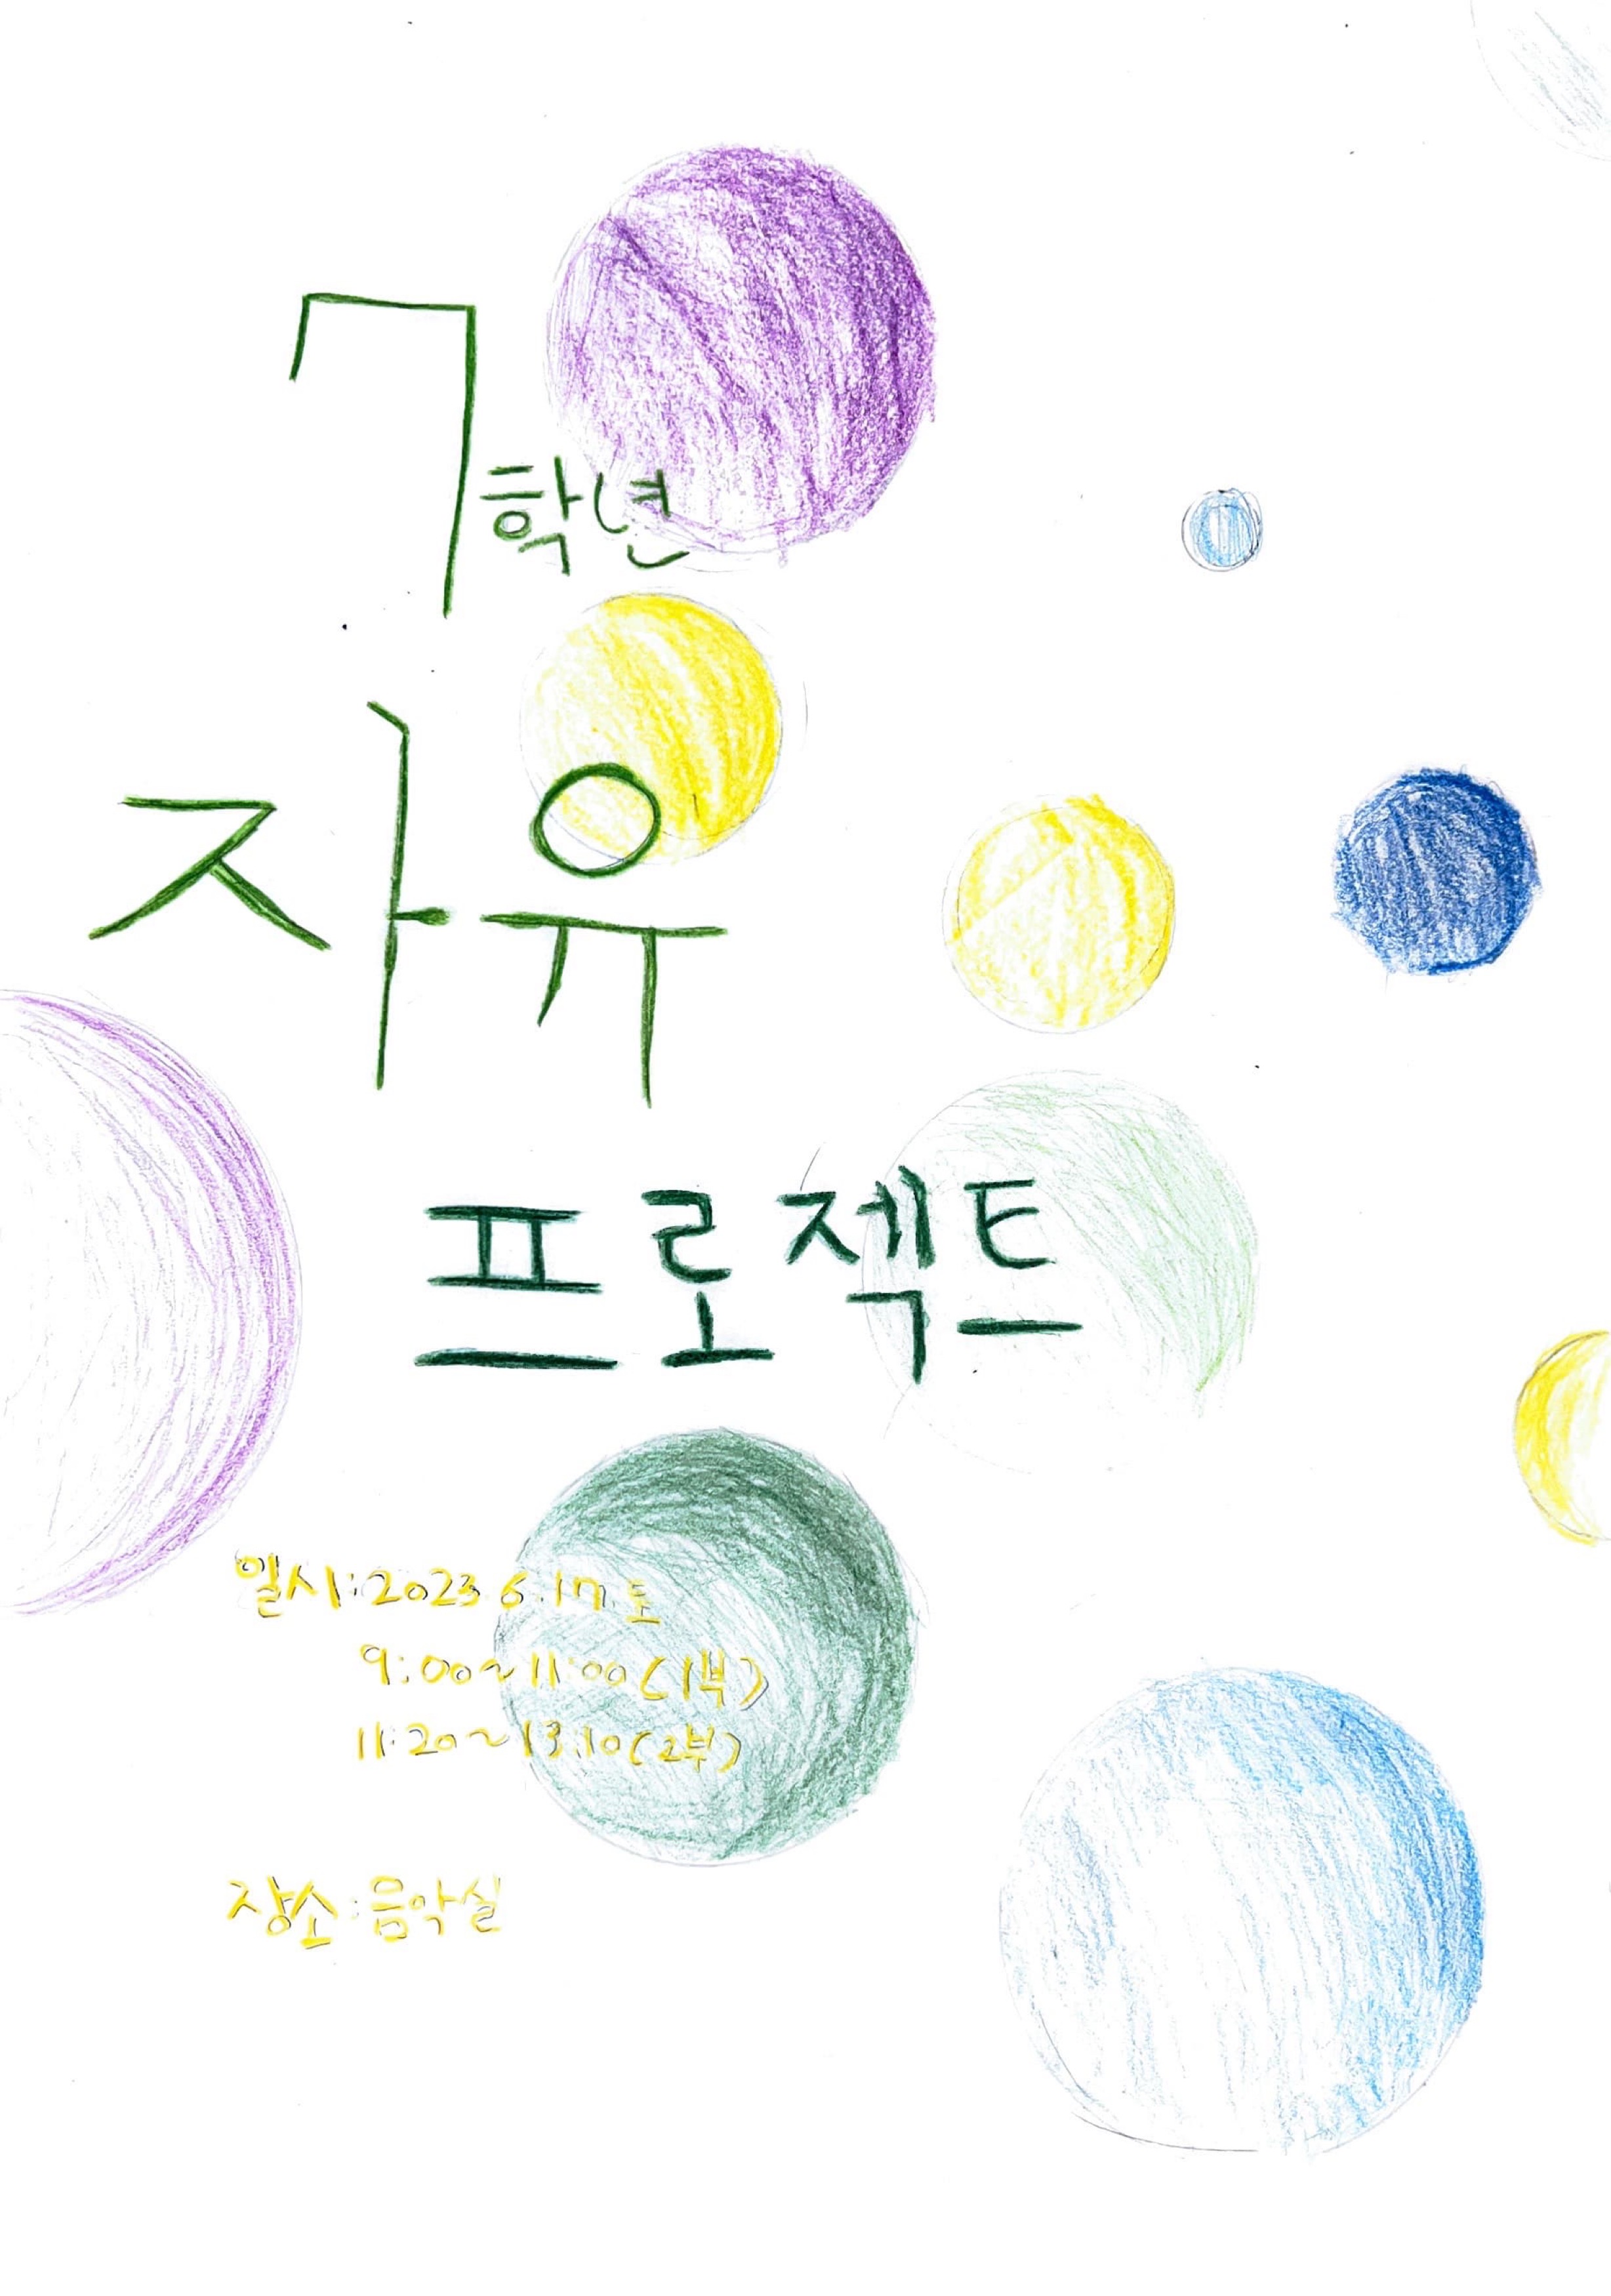 7학년
자유
프로젝트
일시:2023.6.17 토
9:00~11:00(1부)
11:20~13:10(2부)
장소:음악실